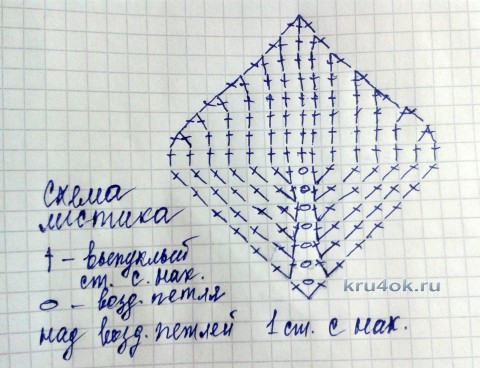 схема
листика
† - выпуклый
ст. с. нак.
0 - возд. петля
над возд. петлей 1 ст. с нак.
kru4ok.ru